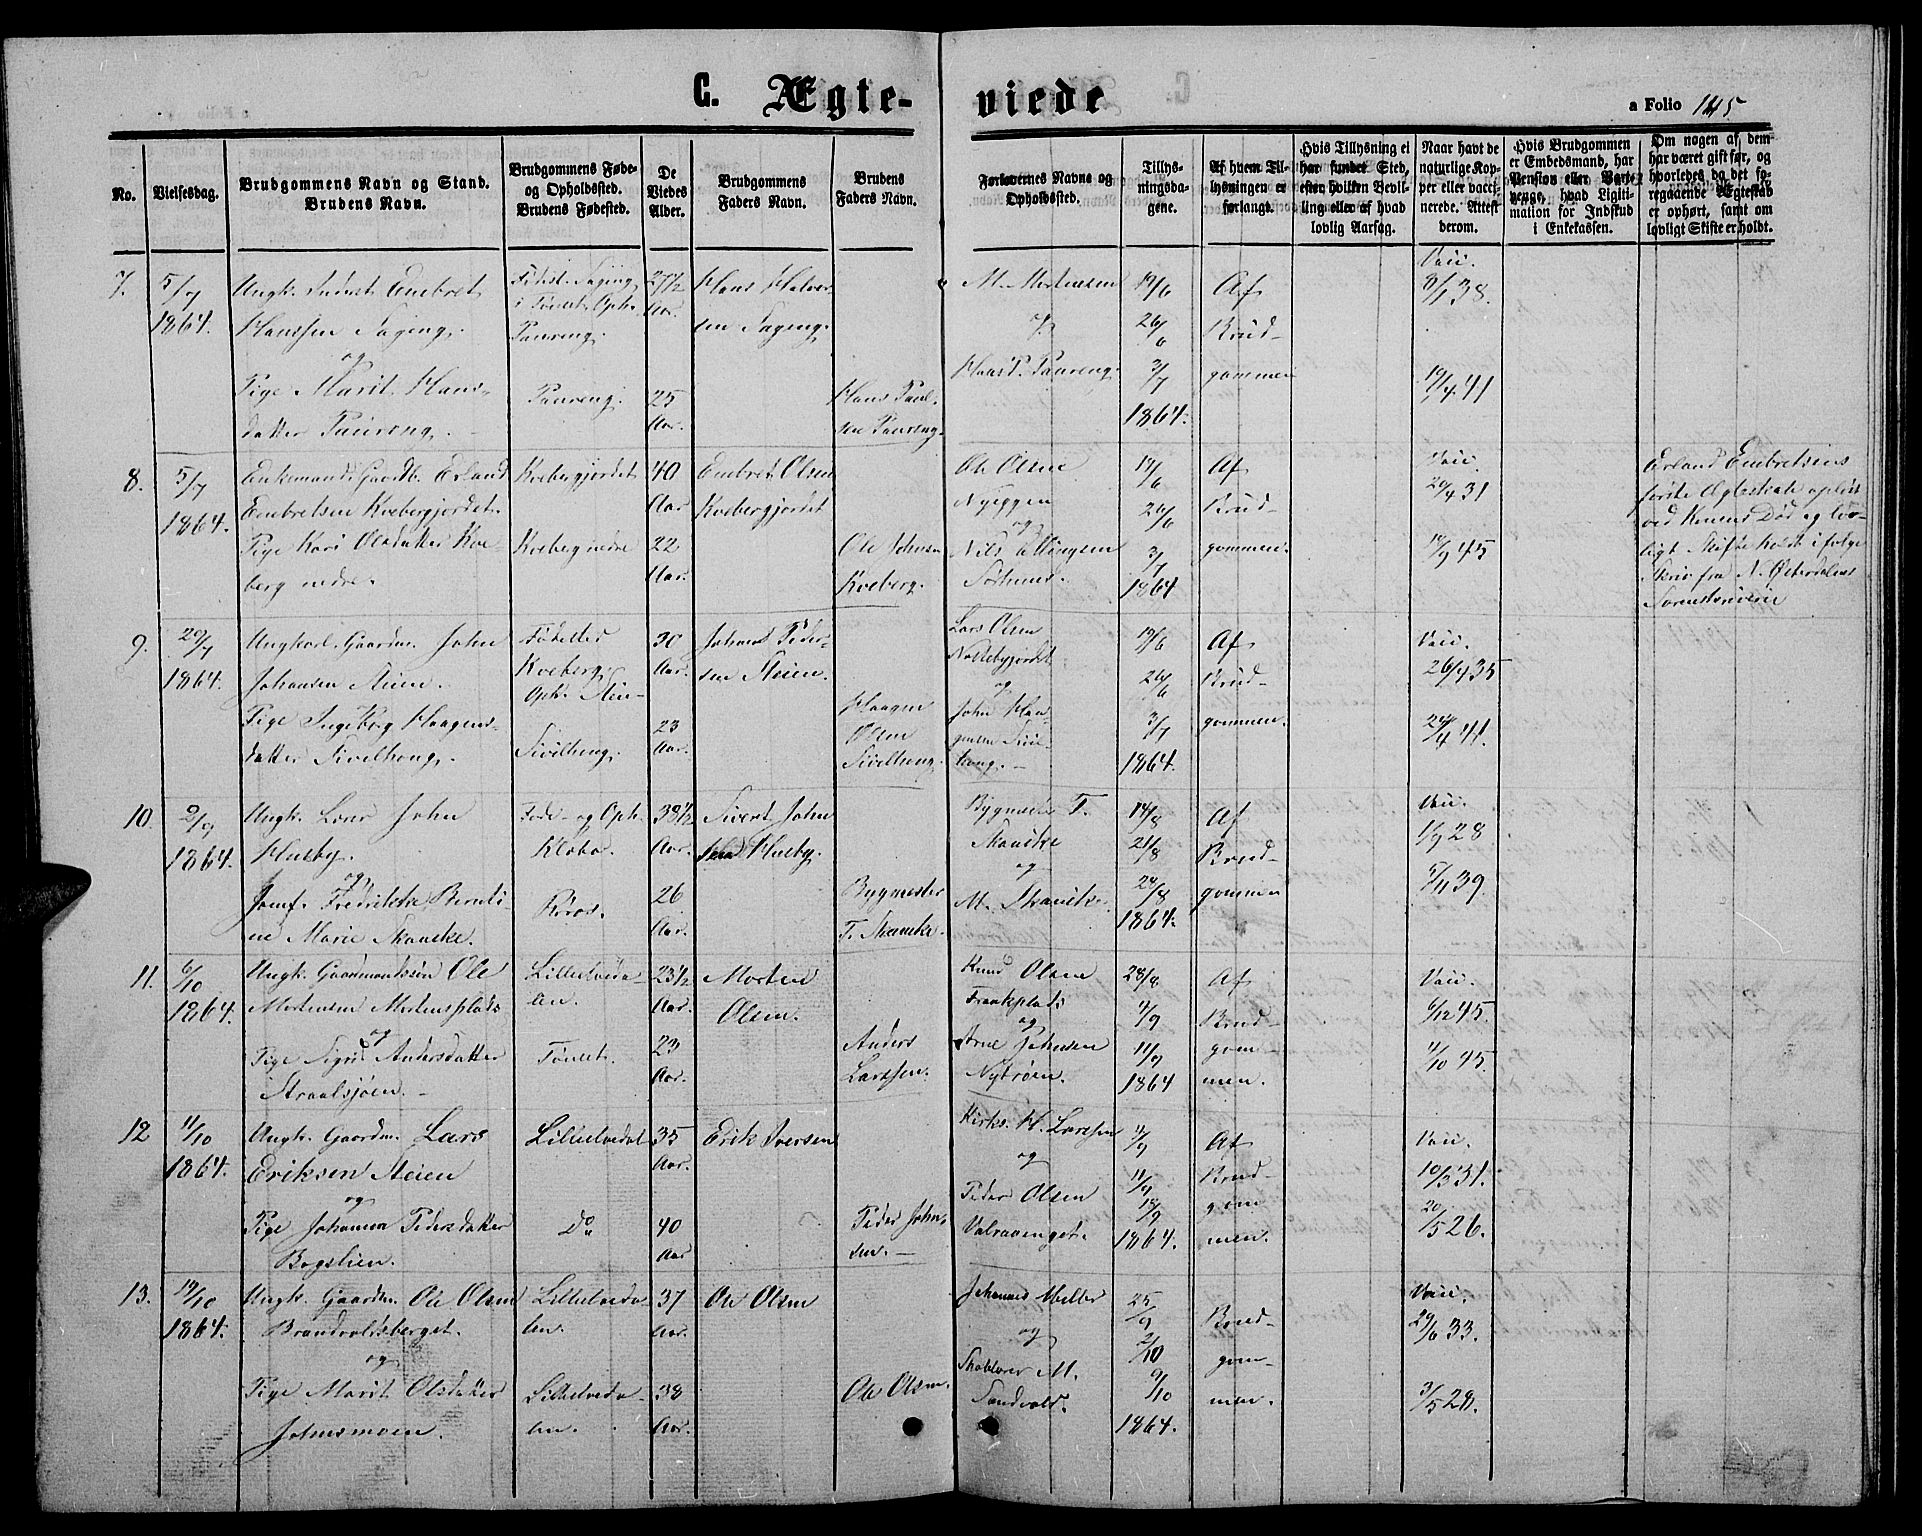 C. Ægte-
viede
a Folio 145
No.
Vielsesdag.
Brudgommens Navn og Stand.
Brudens Navn.
Brudgommens Føde-
og Opholdssted.
Brudens Fødested.
De
Viedes
Alder.
Brudgommens
Faders Navn.
Brudens
Faders Navn.
Forlovernes Navne og
Opholdssted.
Tillys-
ningsda-
gene.
Af hvem Til-
lysningen er
forlangt.
Hvis Tillysning ei
har fundet Sted,
efter hvilken Bevil-
ling eller af hvad
lovlig Aarsag.
Naar havt de
naturlige Kop-
per eller vacci-
nerede. Attest
derom.
Hvis Brudgommen
er Embedsmand, har
Pension eller Varte-
penge, hvad Ligiti-
mation for Indskud
i Enkekassen.
Om nogen af dem-
har været gift før, og
hvorledes da det fo-
regaaende Ægteskab
er ophørt, samt om
lovligt Skifte er holdt.
7.
5/7
1864.
Ungk. Embret
Hanssen
og
Pige Marit Hans-
datter
i Tønset, Oph.
27 1/2
Aar.
25
Aar.
Hans Halvor-
sen
Hans Paul-
sen
M. Mortensen
19/6
26/6
3/7
1864.
Af
Brud-
gommen
Vacc.
8/7 38.
19/4 41
8.
5/7
1864.
Enkemand Gaardb. Erland
Embretsen Kvebergjordet.
Pige Kari Olsdatter Kve-
berg nedre.
Kvebergjordet
Kveberg nedre
40
Aar
22
Aar.
Embret Olsen
Kvebergjordet
Ole Johnsen
Kveberg.
Ole Olsen
Nyeggen
og
Nils
19/6
26/6
3/7
1864
Af
Brud-
gommen.
Vacc.
29/4 31
45
Erland Embretsens
første Ægteskab opløst
ved Konens Død og lov-
ligt Skifte holdt i følge
Skriv fra N. Østerdalens
Sorenskriverie
9.
29/7
1864.
Ungkarl Gaardm. John
Johansen Steien.
Pige Ingeborg Haagens-
datter Sivilhaug.
Kveberg,
Oph. Stei-
Sivilhaug.
30
Aar.
23
Aar.
Johans Peder-
sen Steien.
Haagen
Olsen
Sivilhaug.
Lars Olsen
og
John Haa-
gensen Sivil-
haug.
19/6
26/6
3/7
1864.
Af
Brud-
gommen.
Vacc.
26/4 35
41.
10.
2/9
1864.
Ungk. John
Husby.
og
Jomf. Fredrikke Bernti-
ne Marie Skancke.
Føde- og Oph.
Røros.
38 1/2
Aar.
26
Aar.
Sivert John
sen Husby.
Bygmester
T. Skancke.
Bygmester T.
Skancke
og
M. Skancke.
14/8
21/8
28/8
1864.
Af
Brud-
gommen
Vacc.
28
5/11 39.
11.
6/10
1864.
Ungk. Gaardmandssøn Ole
Mortensen Mortensplads
og
Pige Sigrid Andersdatter
Straalsjøen.
Lilleelveda-
len.
Tønset.
23 1/2
Aar.
23
Aar.
Morten
Olsen.
Anders
Larssen.
Knud Olsen
og
Arne Johnsen
Nytrøen.
28/8
4/9
11/9
1864
Af
Brud-
gom-
men.
Vacc.
6/12 45.
4/10 45.
12
11/10
1864.
Ungk. Gaardm. Lars
Eriksen Steien
og
Pige Johanna Pedersdatter
Bogslien.
Lilleelvedal
Do
35
Aar.
40
Aar
Erik Iversen
Peder John-
sen.
Kirks. H. Larssen
og
Peder Olsen
4/9
11/9
18/9
1864.
Af
Brud-
gom
men.
Vacc.
10/3 31.
20/5 26.
13.
19/10
1864.
Ungk. Gaardm. Ole Olsen
Brandvoldsberget.
og
Pige Marit Olsdatter
Lilleelveda-
len.
Lilleelveda-
len.
37
Aar.
38
Aar.
Ole Olsen
Ole Olsen.
Johannes Møller
og
M.
Sandvold.
25/9
2/10
9/10
1864.
Brud-
gom-
men.
Vacc.
29/6 33.
3/5 28.